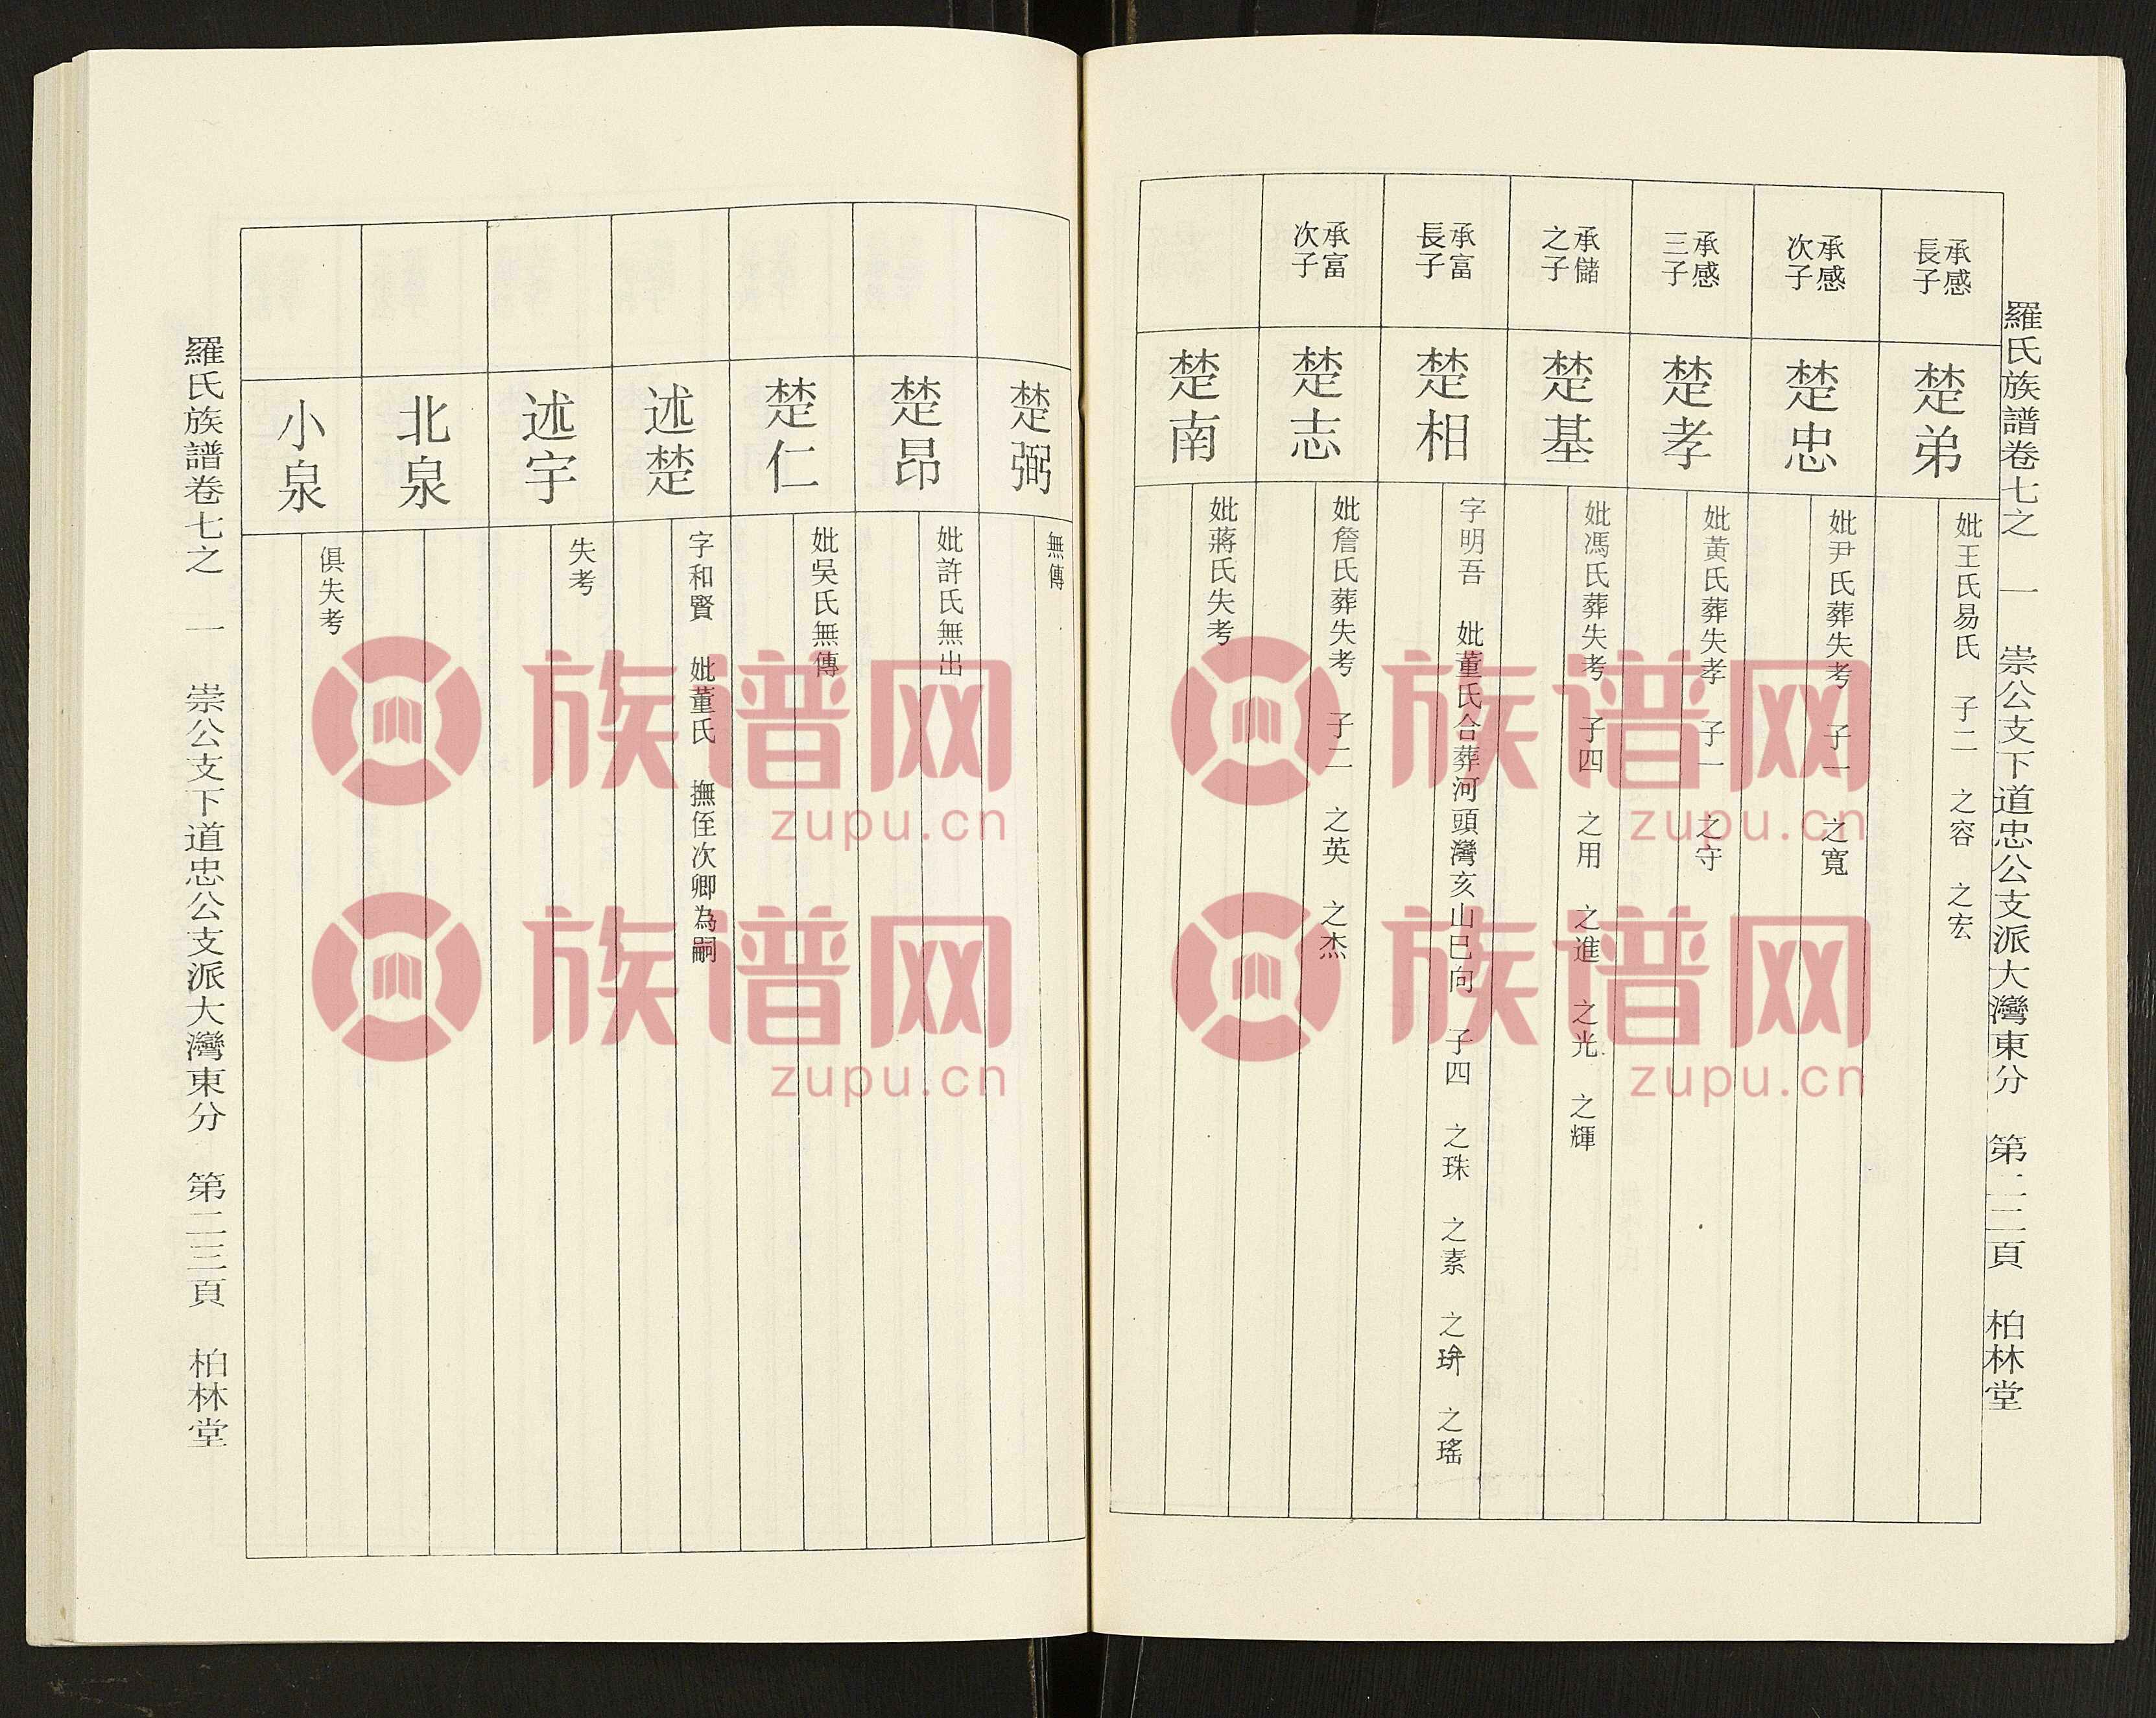 羅氏族譜卷七之 一 崇公支下道忠公支派大灣東分 第二二頁 柏林堂
承感
長子
楚弟
妣王氏易氏 子二 之容 之宏
承感
次子
楚忠
妣尹氏葬失考 子一 之寬
承感
三子
楚孝
妣黃氏葬失孝 子一 之守
承儲
之子
楚基
妣馮氏葬失考 子四 之用 之進 之光 之輝
承富
長子
楚相
字明吾 妣董氏合葬河頭灣亥山巳向 子四 之珠 之素 之𤥨 之瑤
承富
次子
楚志
妣詹氏葬失考 子二 之英 之杰
楚南
妣蔣氏失考
楚弼
無傳
楚昂
妣許氏無出
楚仁
妣吳氏無傳
述楚
字和賢 妣董氏 撫侄次卿為嗣
述宇
失考
北泉
小泉
俱失考
羅氏族譜卷七之 一 崇公支下道忠公支派大灣東分 第二三頁 柏林堂
族谱网
zupu.cn
族谱网
zupu.cn
族谱网
zupu.cn
族谱网
zupu.cn